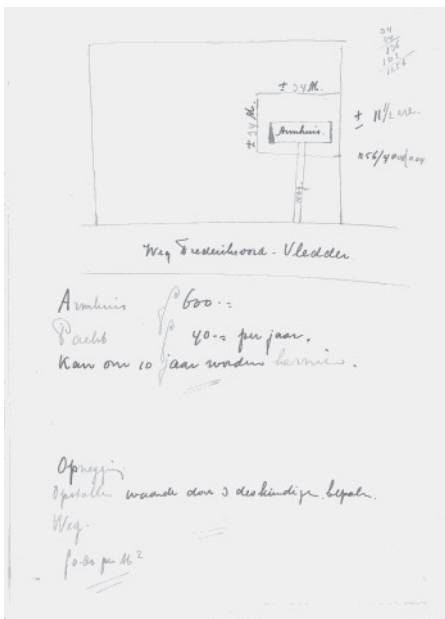 34
34
136
102
1156
± 34 M.
± 34 M.
Armhuis.
± 11½ are.
weg.
Weg Frederiksoord - Vledder
Armhuis f 600.=
Pacht f 40.= per jaar.
Kan om 10 jaar worden herzien.
Opzegging
Opstallen waarde door 3 deskundigen bepalen.
Weg.
per M²